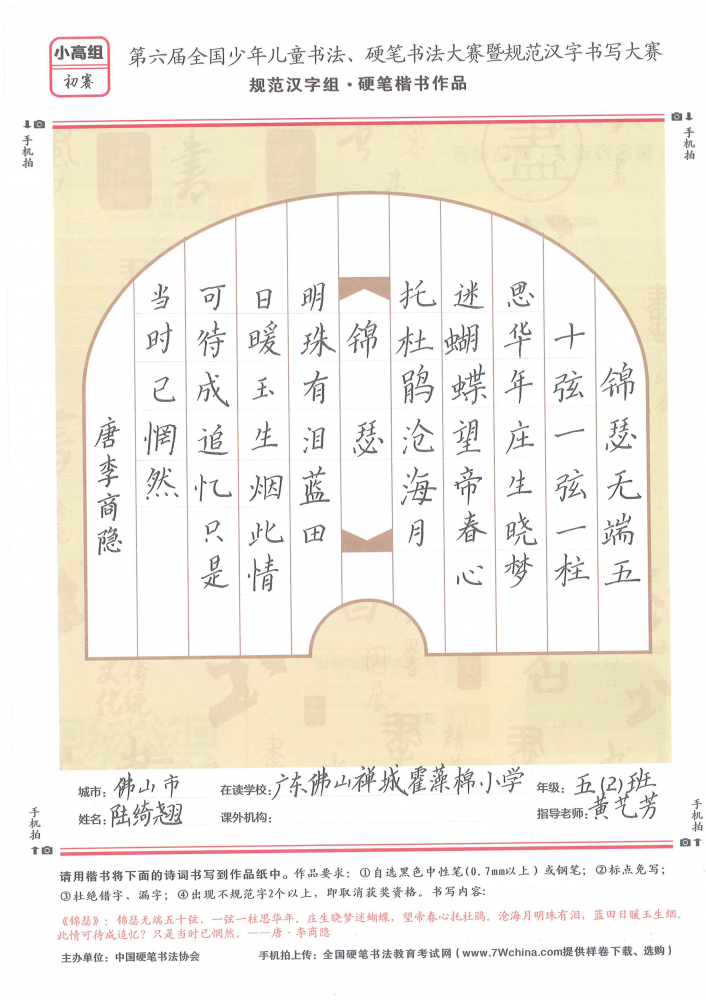 小高组
初赛
第六届全国少年儿童书法、硬笔书法大赛暨规范汉字书写大赛
规范汉字组·硬笔楷书作品
手机拍
手机拍
锦瑟无端五
十弦一弦一柱
思华年庄生晓梦
迷蝴蝶望帝春心
托杜鹃沧海月
锦瑟
明珠有泪蓝田
日暖玉生烟此情
可待成追忆只是
当时已惘然
唐李商隐
城市：佛山市
在读学校：广东佛山禅城霍藻棉小学
年级：五(2)班
姓名：陆绮翘
课外机构：
指导老师：黄艺芳
手机拍
手机拍
请用楷书将下面的诗词书写到作品纸中。作品要求：①自选黑色中性笔(0.7mm以上）或钢笔；②标点免写；
③杜绝错字、漏字；④出现不规范字2个以上，即取消获奖资格。书写内容：
《锦瑟》：锦瑟无端五十弦，一弦一柱思华年。庄生晓梦迷蝴蝶，望帝春心托杜鹃。沧海月明珠有泪，蓝田日暖玉生烟。
此情可待成追忆？只是当时已惘然。——唐·李商隐
主办单位：中国硬笔书法协会
手机拍上传：全国硬笔书法教育考试网（www.7Wchina.com提供样卷下载、选购）